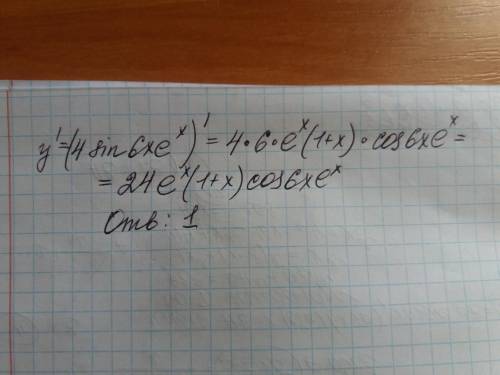 y'=(4 sin 6xeˣ)' = 4·6·eˣ(1+x)·cos6xeˣ=
= 24eˣ(1+x)cos6xeˣ
Отв: 1